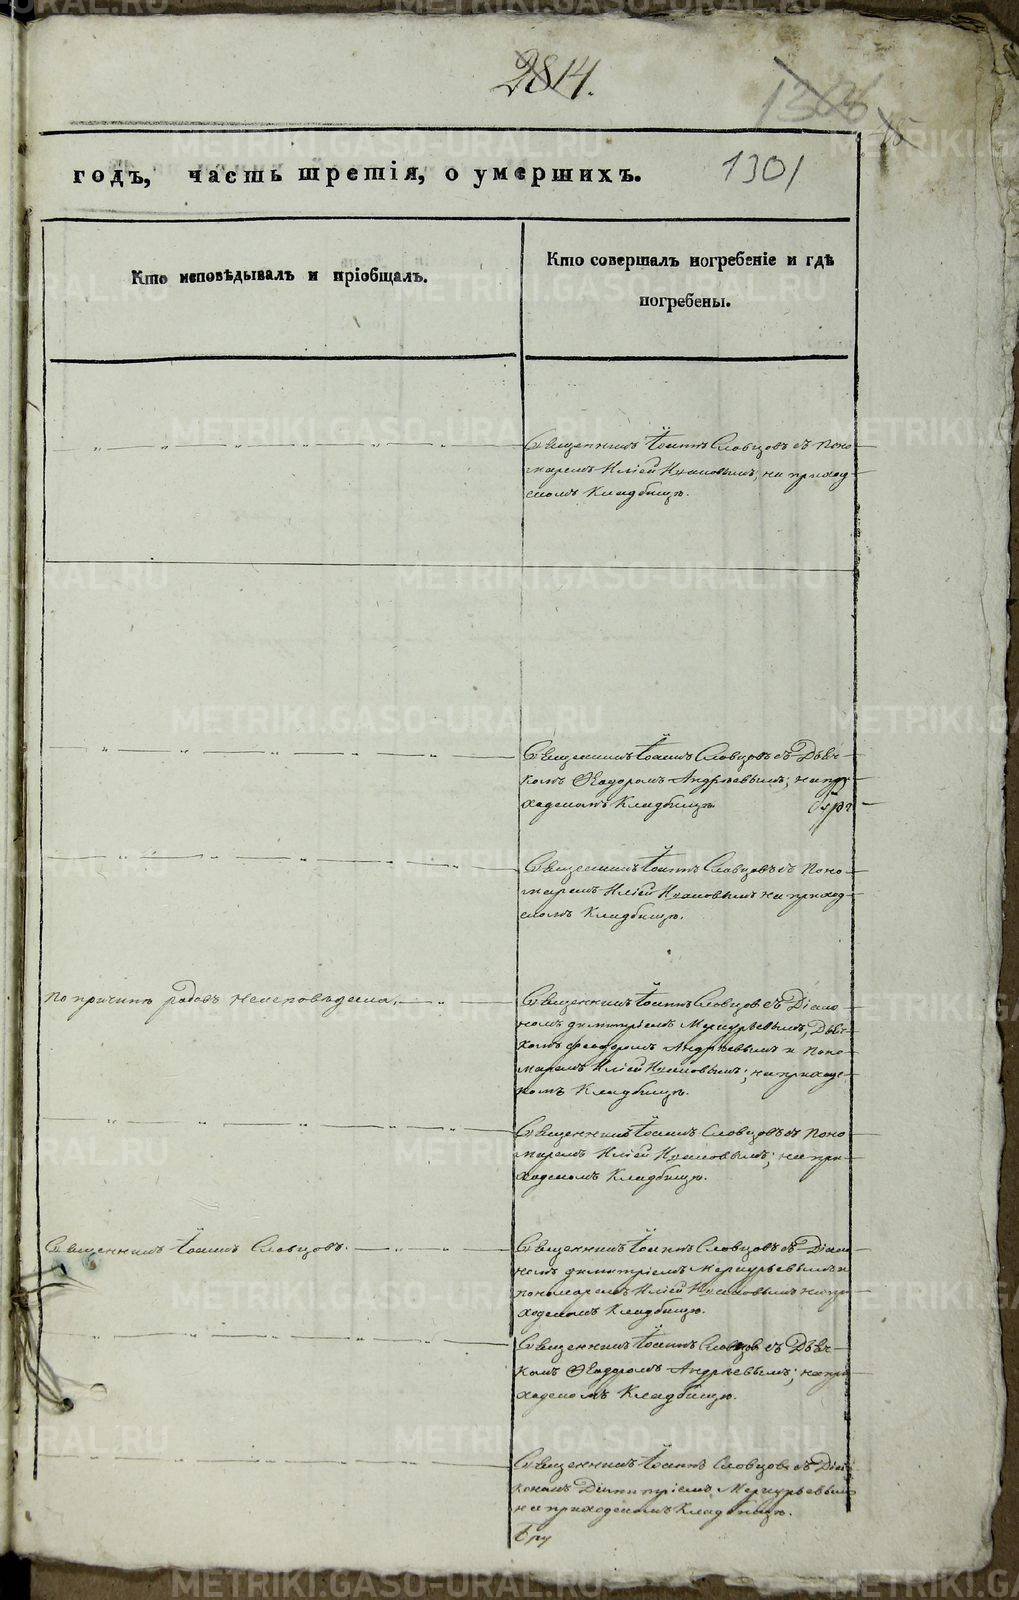 2814.
1306
15
годъ, часть третія, о умершихъ.
1301
Кто исповѣдывалъ и пріобщалъ.
Кто совершалъ погребеніе и гдѣ
погребены.
Священникъ Іоаннъ Словцовъ съ Поно
маремъ Иліей Ивановымъ; на приход
скомъ Кладбищѣ.
Священникъ Іоаннъ Словцовъ съ Дьяч
комъ Ѳеодоромъ Андреевымъ; на при
ходскомъ Кладбищѣ
Священникъ Іоаннъ Словцовъ съ Поно
маремъ Иліей Ивановымъ на приход
скомъ Кладбищѣ.
По причинѣ родовъ неисповѣдана.
Священникъ Іоаннъ Словцовъ съ Діако
номъ Димитріемъ Меркурьевымъ, Дьяч
комъ Феодоромъ Андреевымъ и Поно
маремъ Иліей Ивановымъ; на приходс
комъ Кладбищѣ.
Священникъ Іоаннъ Словцовъ съ Поно
маремъ Иліей Ивановымъ; на при
ходскомъ Кладбищѣ.
Священникъ Іоаннъ Словцовъ.
Священникъ Іоаннъ Словцовъ съ Діако
номъ Димитріемъ Меркурьевымъ и
пономаремъ Иліей Ивановымъ на при
ходскомъ Кладбищѣ.
Священникъ Іоаннъ Словцовъ съ Дьяч
комъ Ѳеодоромъ Андреевымъ; на при
ходскомъ Кладбищѣ.
Священникъ Іоаннъ Словцовъ съ Діа
кономъ Димитріемъ Меркурьевымъ
на приходскомъ Кладбищѣ.
METRIKI.GASO-URAL.RU